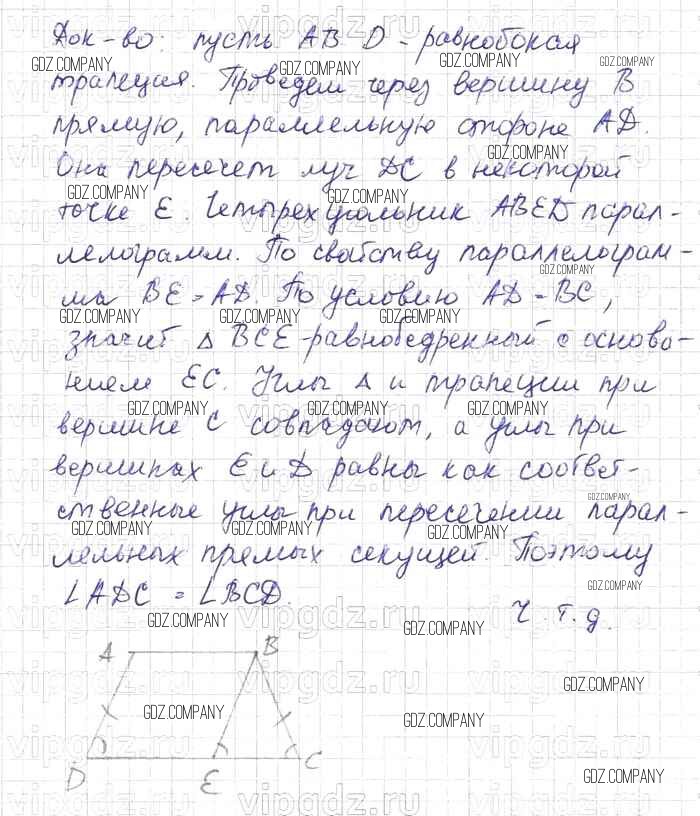 Док-во: пусть АВ D - равнобокая
трапеция. Проведем через вершину В
прямую, параллельную стороне AD.
Она пересечет луч DC в некоторой
точке E. Четырехугольник ABED парал-
лелограмм. По свойству параллелограм-
ма BE = AD. По условию AD = BC,
значит △ BCE - равнобедренный с основа-
нием EC. Углы △ и трапеции при
вершине C совпадают, а углы при
вершинах E и D равны как соответ-
ственные углы при пересечении парал-
лельных прямых секущей. Поэтому
∠ADC = ∠BCD.
Ч. т. д.
A B
D E C
GDZ.COMPANY
vipgdz.ru